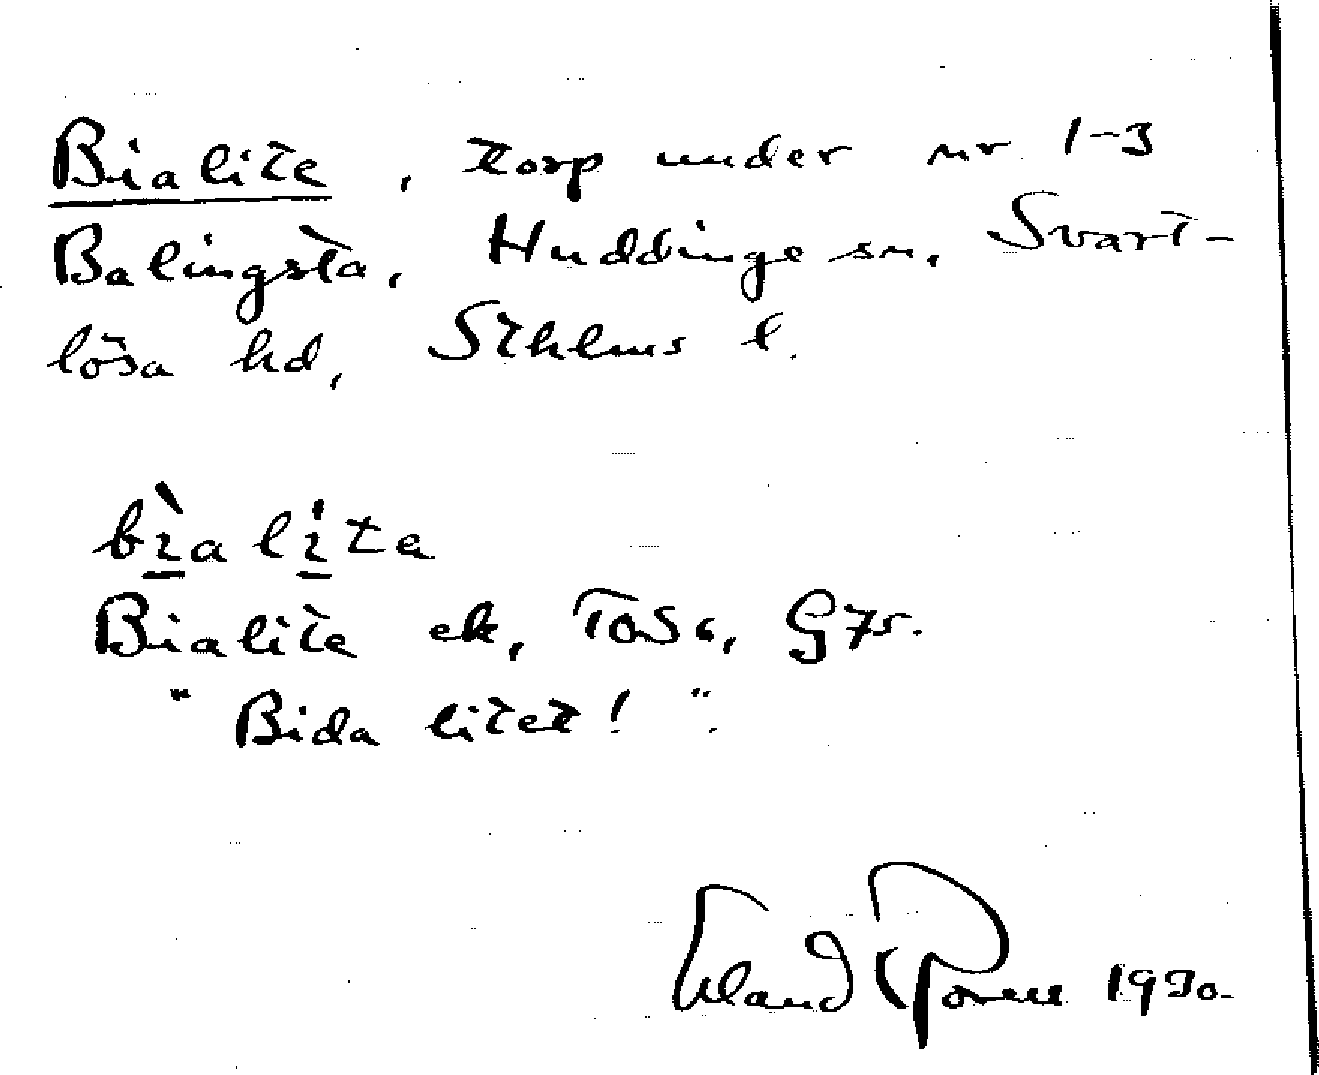 Bialite, torp under nr 1-3
Balingsta, Huddinge sn, Svart-
lösa hd, Sthlms l.
bìalita
Bialite ek, G75.
"Bida litet!".
1930.